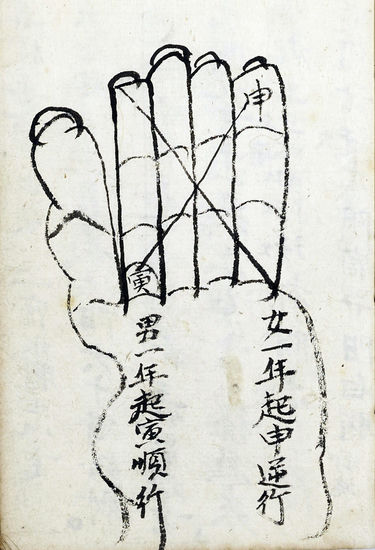 申
寅
女一年起申逆行
男一年起寅順行